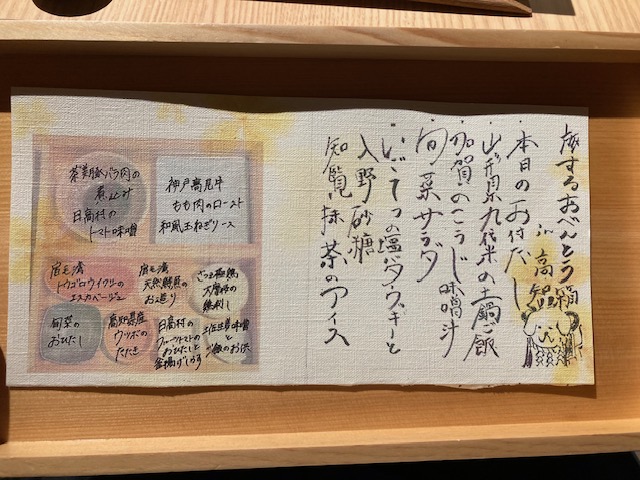 旅するおべんとう箱
in 高知
本日のお付だし
山形県九代米の土鍋ご飯
加賀のこうじ味噌汁
旬菜サラダ
いごてつの塩バタースキーと
入野砂糖
知覧抹茶のアイス
茶美豚バラ肉の
煮込み
日高村の
トマト味噌
神戸高見牛
もも肉のロースト
和風玉ねぎソース
宿毛湾
トウゴロウイワシの
エスカベーシュ
宿毛湾
天然鯛の
お造り
旬菜の
おひたし
高知県産
ウツボの
たたき
日高村の
フルーツトマトの
おひたしと
釜揚げしらす